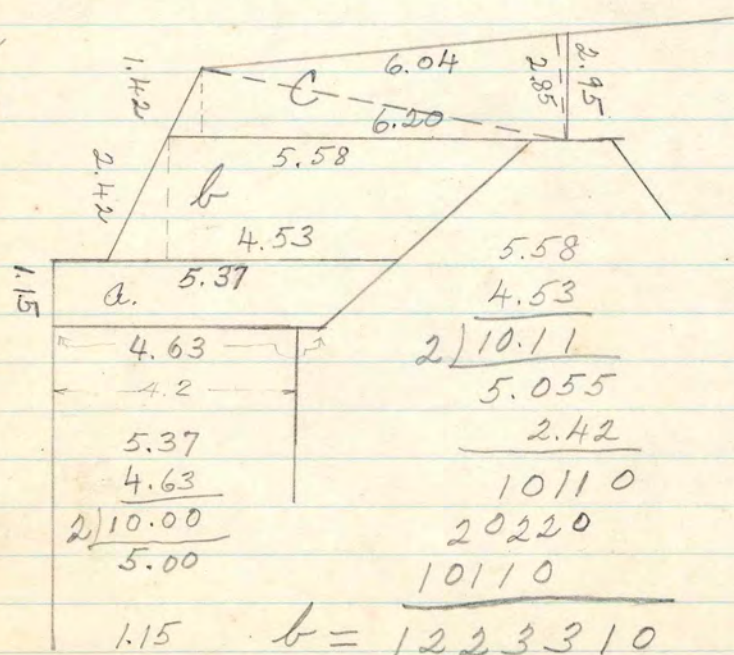 6.04
2.95
2.85
1.42
C
6.20
5.58
2.42
b
4.53
1.15
a.
5.37
4.63
4.2
5.37
4.63
2)10.00
5.00
1.15
5.58
4.53
2)10.11
5.055
2.42
10110
20220
10110
b = 1223310